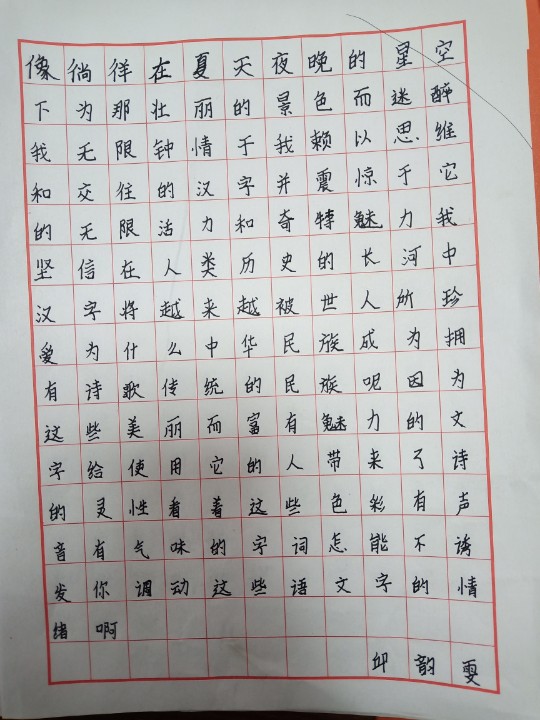 像徜徉在夏天夜晚的星空
下为那壮丽的景色而迷醉
我无限钟情于我赖以思维
和交往的汉字并震惊于它
的无限活力和奇特魅力我
坚信在人类历史的长河中
汉字将越来越被世人所珍
爱为什么中华民族成为拥
有诗歌传统的民族呢因为
这些美丽而富有魅力的文
字给使用它的人带来了诗
的灵性看着这些色彩有声
音有气味的字词怎能不诱
发你调动这些语文字的情
绪啊
邱韵雯